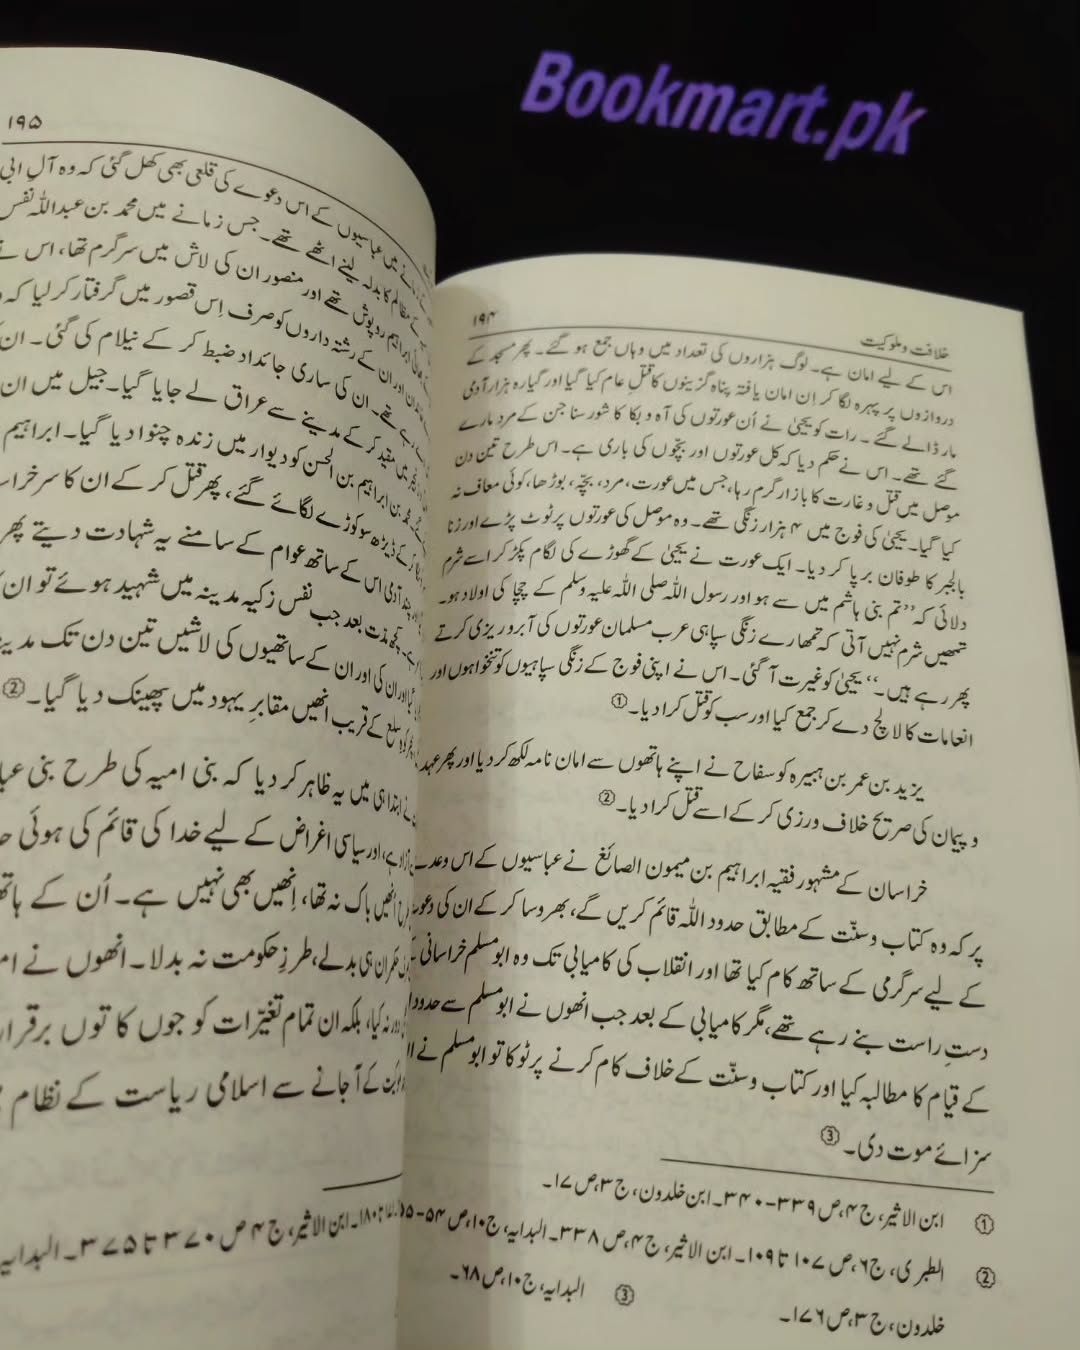 Bookmart.pk
۱۹۴
خلافت و ملوکیت
اس کے لیے امان ہے۔ لوگ ہزاروں کی تعداد میں وہاں جمع ہو گئے۔ پھر مسجد کے
دروازوں پر پہرہ لگا کر اِن امان یافتہ پناہ گزینوں کا قتلِ عام کیا گیا اور گیارہ ہزار آدمی
مار ڈالے گئے۔ رات کو یحییٰ نے اُن عورتوں کی آہ و بکا کا شور سنا جن کے مرد مارے
گئے تھے۔ اس نے حکم دیا کہ کل عورتوں اور بچّوں کی باری ہے۔ اس طرح تین دن
موصل میں قتل و غارت کا بازار گرم رہا، جس میں عورت، مرد، بچّہ، بوڑھا، کوئی معاف نہ
کیا گیا۔ یحییٰ کی فوج میں ۴ ہزار زنگی تھے۔ وہ موصل کی عورتوں پر ٹوٹ پڑے اور زنا
بالجبر کا طوفان برپا کر دیا۔ ایک عورت نے یحییٰ کے گھوڑے کی لگام پکڑ کر اسے شرم
دلائی کہ ’’تم بنی ہاشم میں سے ہو اور رسول اللہ صلی اللہ علیہ وسلم کے چچا کی اولاد ہو۔
تمھیں شرم نہیں آتی کہ تمھارے زنگی سپاہی عرب مسلمان عورتوں کی آبرو ریزی کرتے
پھر رہے ہیں۔‘‘ یحییٰ کو غیرت آ گئی۔ اس نے اپنی فوج کے زنگی سپاہیوں کو تنخواہوں اور
انعامات کا لالچ دے کر جمع کیا اور سب کو قتل کرا دیا۔①
یزید بن عمر بن ہبیرہ کو سفاح نے اپنے ہاتھوں سے امان نامہ لکھ کر دیا اور پھر عہد
و پیمان کی صریح خلاف ورزی کر کے اسے قتل کرا دیا۔②
خراسان کے مشہور فقیہ ابراہیم بن میمون الصائغ نے عباسیوں کے اس وعدے
پر کہ وہ کتاب و سنّت کے مطابق حدود اللہ قائم کریں گے، بھروسا کر کے ان کی دعوت
کے لیے سرگرمی کے ساتھ کام کیا تھا اور انقلاب کی کامیابی تک وہ ابو مسلم خراسانی
دستِ راست بنے رہے تھے، مگر کامیابی کے بعد جب انھوں نے ابو مسلم سے حدود
کے قیام کا مطالبہ کیا اور کتاب و سنّت کے خلاف کام کرنے پر ٹوکا تو ابو مسلم نے
سزائے موت دی۔③
① ابن الاثیر، ج ۴، ص ۳۳۹-۳۴۰۔ ابن خلدون، ج ۳، ص ۱۷۔
② الطبری، ج ۶، ص ۱۰۷ تا ۱۰۹۔ ابن الاثیر، ج ۴، ص ۳۳۸۔ البدایہ، ج ۱۰، ص ۵۴-۵۵
خلدون، ج ۳، ص ۱۷۶۔
③ البدایہ، ج ۱۰، ص ۶۸۔
۱۹۵
میں عباسیوں کے اس دعوے کی قلعی بھی کھل گئی کہ وہ آلِ ابی
کے مظالم کا بدلہ لینے اٹھے تھے۔ جس زمانے میں محمد بن عبداللہ نفس
ابراہیم روپوش تھے اور منصور ان کی تلاش میں سرگرم تھا، اس نے
اور ان کے رشتہ داروں کو صرف اِس قصور میں گرفتار کر لیا کہ
تھے۔ ان کی ساری جائداد ضبط کر کے نیلام کی گئی۔ ان
میں مقید کر کے مدینے سے عراق لے جایا گیا۔ جیل میں ان
محمد بن ابراہیم بن الحسن کو دیوار میں زندہ چنوا دیا گیا۔ ابراہیم
کے ڈیڑھ سو کوڑے لگائے گئے، پھر قتل کر کے ان کا سر خراسا
چند آدمی اس کے ساتھ عوام کے سامنے یہ شہادت دیتے پھر
کچھ مدّت بعد جب نفس زکیہ مدینہ میں شہید ہوئے تو ان
اور ان کی اور ان کے ساتھیوں کی لاشیں تین دن تک مدینے
سلع کے قریب انھیں مقابرِ یہود میں پھینک دیا گیا۔②
نے ابتدا ہی میں یہ ظاہر کر دیا کہ بنی امیہ کی طرح بنی عبا
اور سیاسی اغراض کے لیے خدا کی قائم کی ہوئی
انھیں باک نہ تھا، اِنھیں بھی نہیں ہے۔ اُن کے ہاتھ
حکمران ہی بدلے، طرزِ حکومت نہ بدلا۔ انھوں نے
نہ کیا، بلکہ ان تمام تغیّرات کو جوں کا توں برقرار
کے آ جانے سے اسلامی ریاست کے نظام
ابن الاثیر، ج ۴ ص ۳۷۰ تا ۳۷۵۔ البدایہ